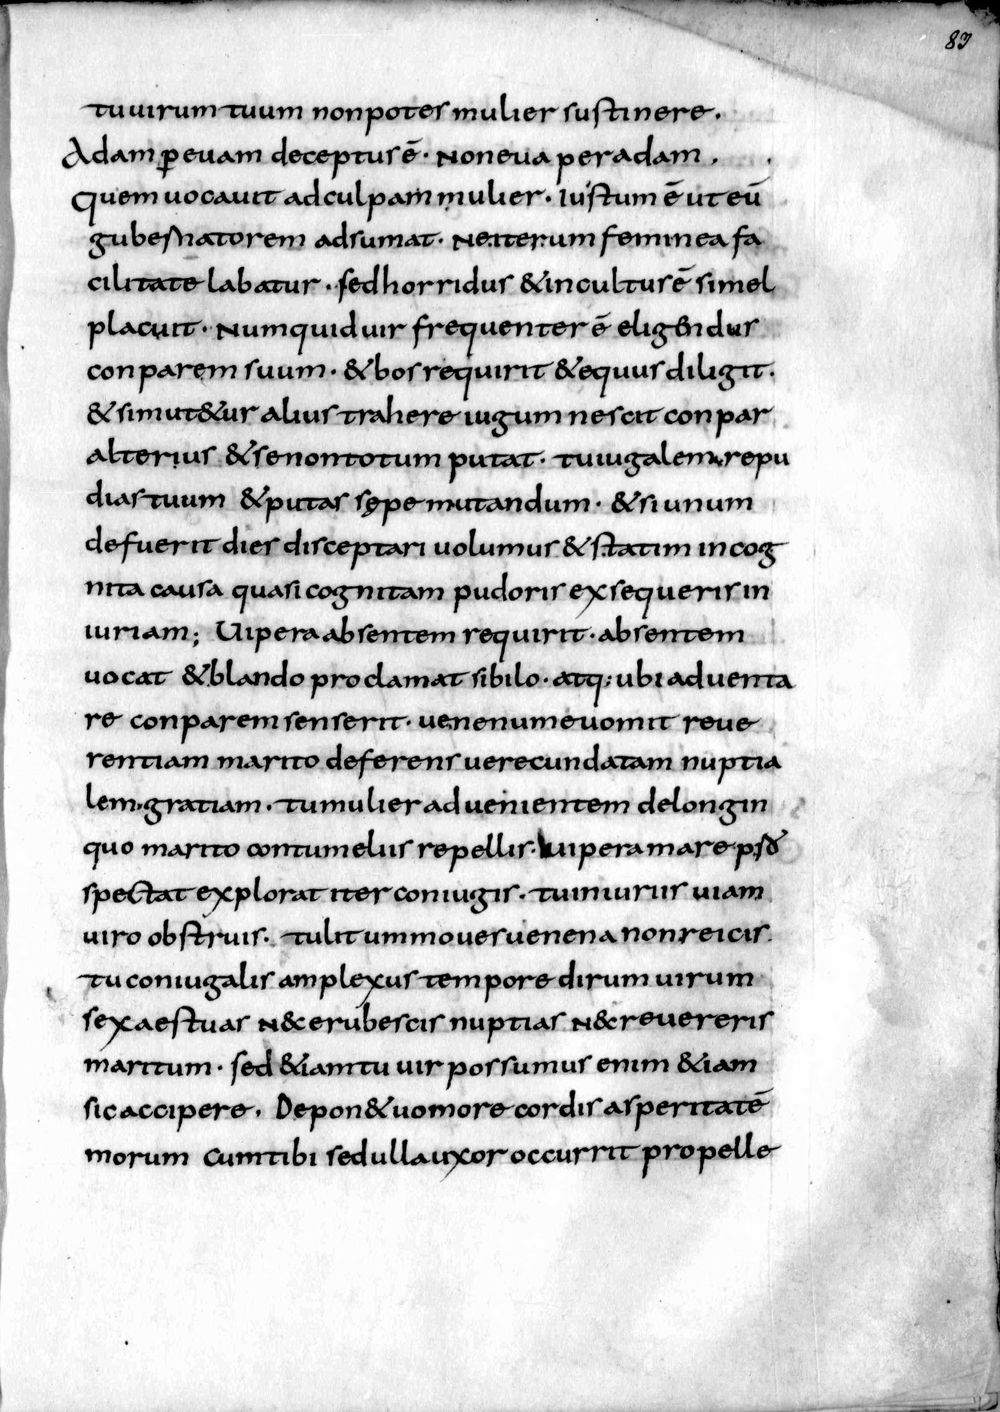 83
tu uirum tuum non potes mulier sustinere.
Adam ꝑ euam deceptus ē· Non eua per adam.
Quem uocauit ad culpam mulier· Iustum ē ut eū
gubernatorem adsumat· Ne iterum feminea fa
cilitate labatur· sed horridus & incultus ē simel
placuit· Numquid uir frequenter ē eligendus
conparem suum· & bos requirit & equus diligit·
& si mut&ur alius trahere iugum nescit conpar
alterius & se non totum putat· tu iugalem repu
dias tuum & putas sępe mutandum· & si unum
defuerit dies disceptari uolumus & statim incog
nita causa quasi cognitam pudoris exsequeris in
iuriam; Uipera absentem requirit· absentem
uocat & blando proclamat sibilo· atq: ubi aduenta
re conparem senserit· uenenum euomit reue
rentiam marito deferens uerecundatam nuptia
lem gratiam· tu mulier aduenientem de longin
quo marito contumeliis repellis· uipera mare
spectat explorat iter coniugis· tu iniuriis uiam
uiro obstruis· tu litum moues uenena non reicis·
tu coniugalis amplexus tempore dirum uirum
sexaestuas N& erubescis nuptias N& reuereris
maritum· sed &iam tu uir possumus enim &iam
sic accipere· Depon& uomore cordis asperitatē
morum cum tibi sedulla uxor occurrit propelle